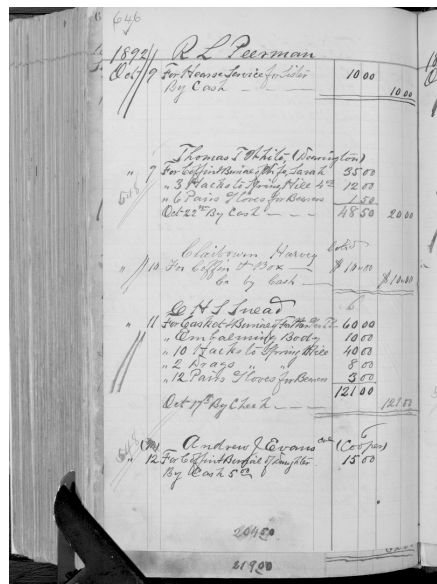 646
1892 R L Peerman
Oct 9 For Hearse Service for Sister 10 00
By Cash 10 00
Thomas T White, (Dearington)
" 9 For Coffin & Burying Wife, Sarah 35 00
648 " 3 Hacks to Spring Hill 4.00 12 00
" 6 Pairs Gloves for Bearers 1 50
Oct 22nd By Cash 48 50 20 00
Claibourn Harvey Cold
" 10 For Coffin & Box $ 10.00
Cr by Cash $10.00
C H L Snead
" 11 For Casket & Burying Father 60 00
" Embalming Body 10 00
" 10 Hacks to Spring Hill 40 00
" 2 Drags " " 8 00
" 12 Pairs Gloves for Bearers 3 00
121 00
Oct 17th By Check 121 00
648 Andrew J Evans Col (Cooper)
" 12 For Coffin & Burial of Daughter 15 00
By Cash 5 00
204 50
219 00